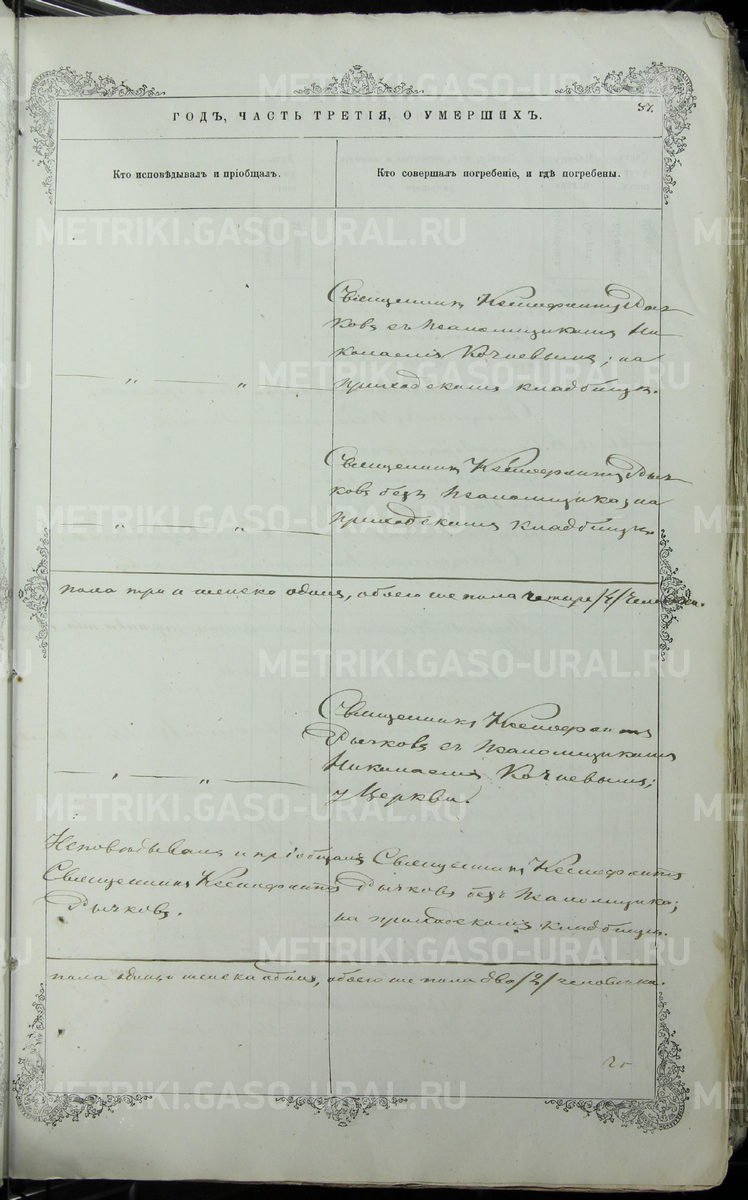 ГОДЪ, ЧАСТЬ ТРЕТІЯ, О УМЕРШИХЪ.
Кто исповѣдывалъ и пріобщалъ.
Кто совершалъ погребеніе, и гдѣ погребены.
Священникъ Ксенофонтъ Рыч-
ковъ съ Псаломщикомъ Ни-
колаемъ Кочневымъ; на
— „ — „ —
приходскомъ кладбищѣ.
Священникъ Ксенофонтъ Рыч-
ковъ безъ Псаломщика; на
— „ — „ —
приходскомъ кладбищѣ.
пола три и женска одинъ, обоего же пола четыре /4/ человѣка.
Священникъ Ксенофонтъ
Рычковъ съ Псаломщикомъ
Николаемъ Кочневымъ;
— „ — „ —
у Церкви.
Исповѣдывалъ и пріобщалъ
Священникъ Ксенофонтъ
Рычковъ.
Священникъ Ксенофонтъ
Рычковъ безъ Псаломщика;
на приходскомъ кладбищѣ.
пола одинъ и женска одинъ, обоего же пола два /2/ человѣка.
METRIKI.GASO-URAL.RU